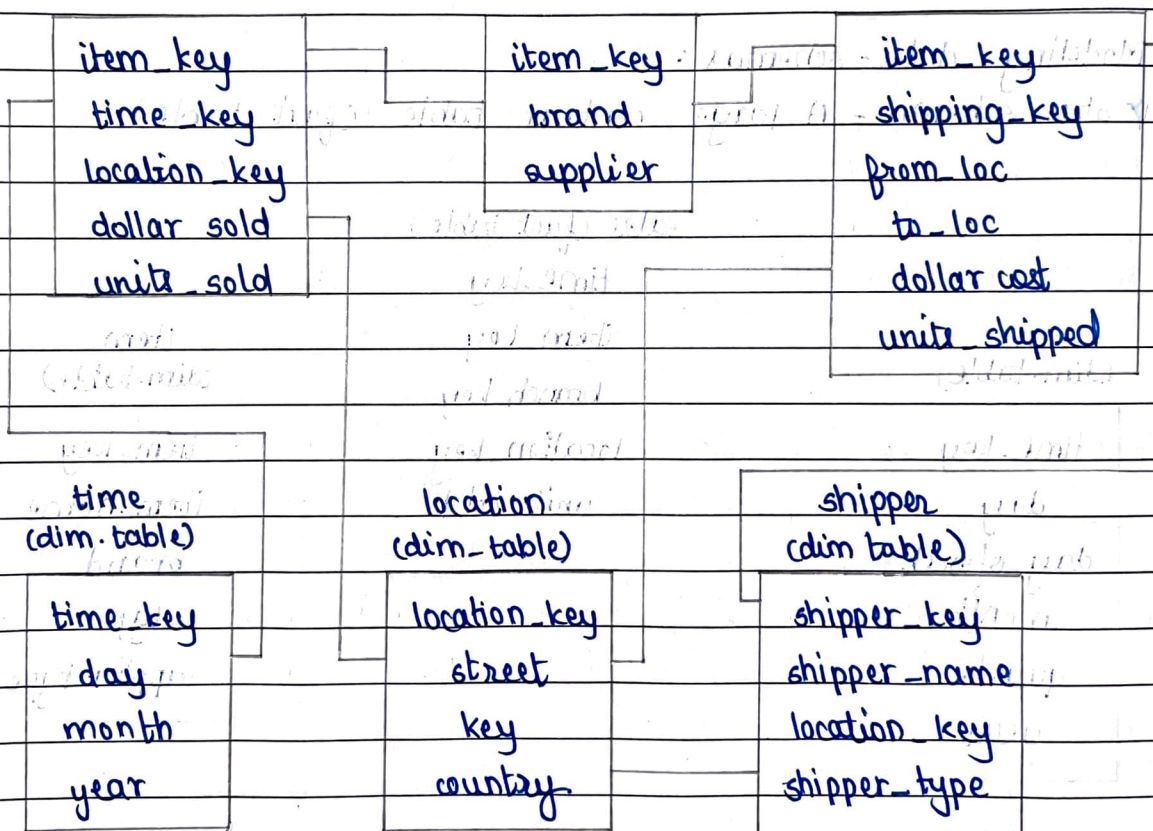 item_key
time_key
location_key
dollar sold
units_sold
item_key
brand
supplier
item_key
shipping_key
from_loc
to_loc
dollar cost
units_shipped
time
(dim.table)
time_key
day
month
year
location
(dim_table)
location_key
street
key
country
shipper
(dim table)
shipper_key
shipper_name
location_key
shipper_type